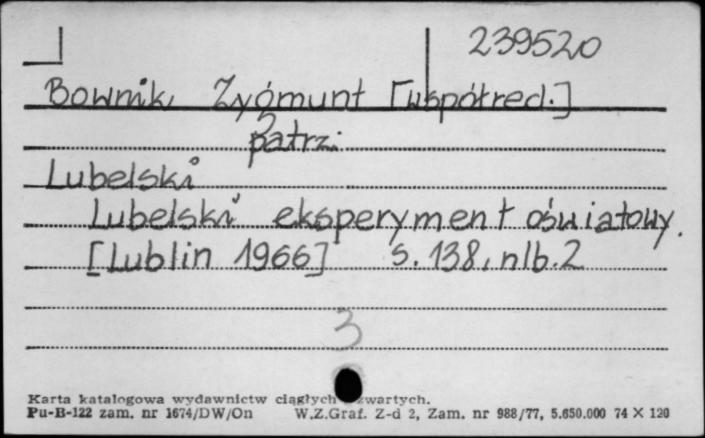 239520
Bownik, Zygmunt [współred.]
patrz:
Lubelski
Lubelski eksperyment oświatowy.
[Lublin 1966] s. 138, nlb. 2
3
Karta katalogowa wydawnictw ciągłych zwartych.
Pu-B-122 zam. nr 1674/DW/On W.Z.Graf. Z-d 2, Zam. nr 988/77, 5.650.000 74 X 120